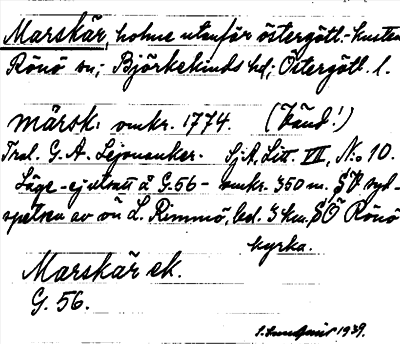 Marskär, holme utanför östergötl.-kusten
Rönö sn; Björkekinds hd; Östergötl. l.
märsk: omkr. 1774. (Känd!)
Tral. G. A. Lejonanker. Sj.A. Litt. VII, No 10.
Läge - ej utsatt å G.56 - omkr. 350 m. SV syd-
spetsen av ön L. Rimmö, bel. 3 km. SÖ Rönö
kyrka.
Marskär ek.
G. 56.
1939.